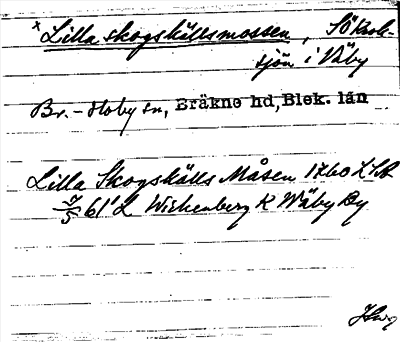 × Lilla skogskällsmossen, SÖ Krok-
sjön i Väby
Br.-Hoby sn, Bräkne hd, Blek. län
Lilla Skogskälls Måsen 1760 LSA
61' L Wickenberg K Wäby By